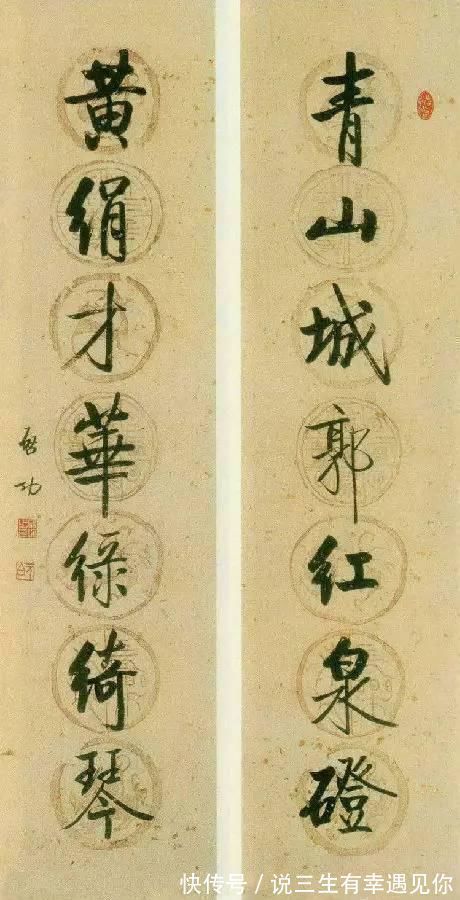 青山城郭红泉磴
黄绢才華緑綺琴
启功
快传号/说三生有幸遇见你